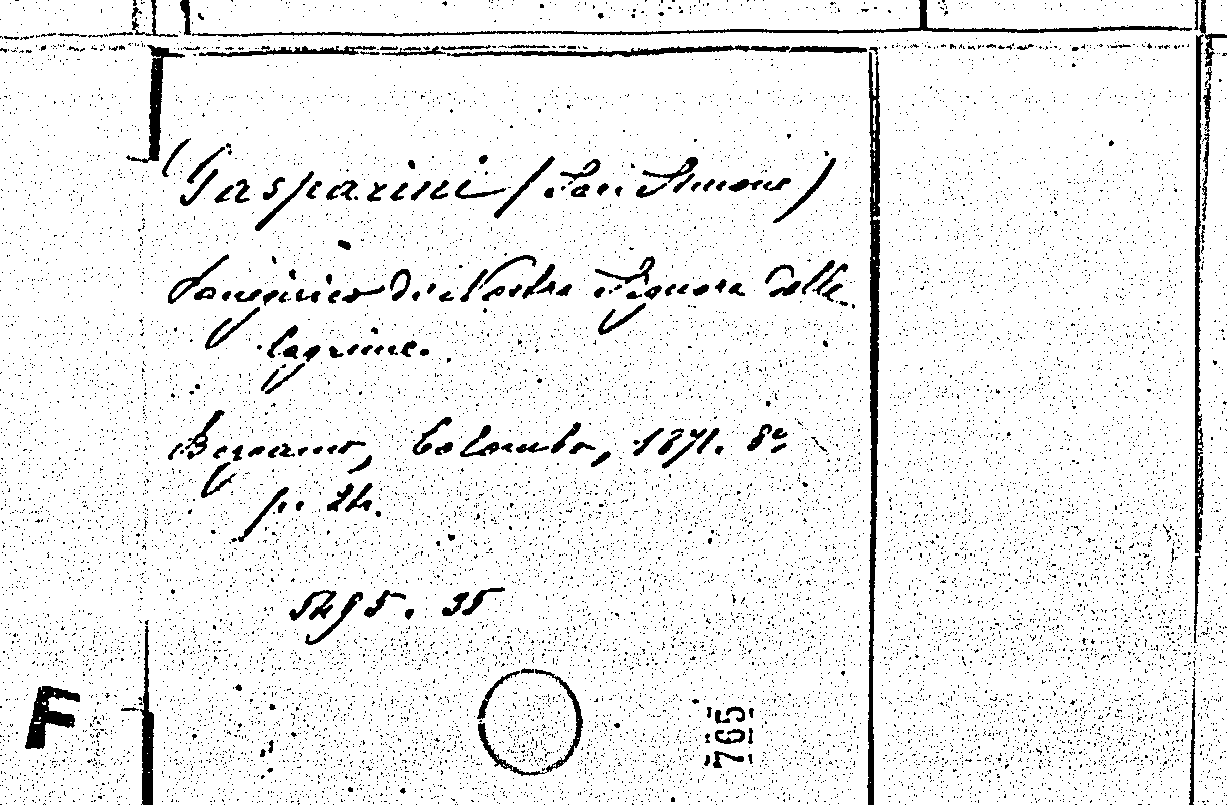 Gasparini (San Simone)
Panegirico di Nostra Signora delle
lagrime.
Bergamo, Colombo, 1871. 8°
p. 24.
5495. 35
F
765